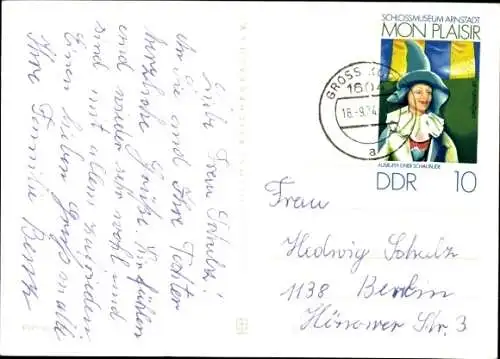 Liebe Frau Schulz!
Ihnen und Ihre Tochter
herzliche Grüße. Wir fühlen
uns wieder sehr wohl und
sind mit allem zufrieden
Einen lieben Gruß an alle
Ihre Familie
SCHLOSSMUSEUM ARNSTADT
MON PLAISIR
GROSS
1604
16.-9.74
a
AUSRUFER EINER SCHAUBUDE
DDR 10
Frau
Hedwig Schulz
1138 Berlin
Hönower Str. 3